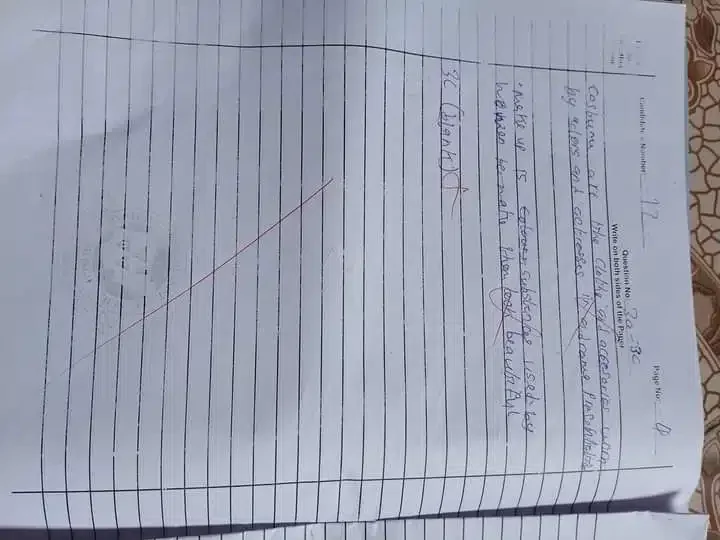 Candidate's Number 12
Page No: 4
Question No. 3a - 3c
Write on both sides of the Paper
Costume are the Clothe and accesories worn
by actors and actresses in a drama Presentation
• Make up is colour substance used by
women to make them look beautiful
3C (blank)